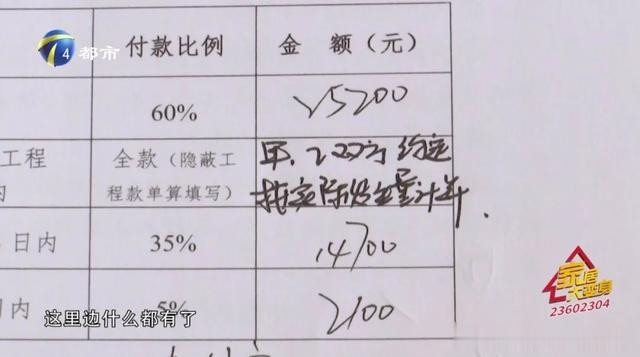 4 都市
付款比例
金 额（元）
60%
25200
工程
全款（隐蔽工
程款单算填写）
甲、乙双方约定
按实际发生量计算.
日内
35%
14700
内
5%
2100
这里边什么都有了
家居
大变身
23602304